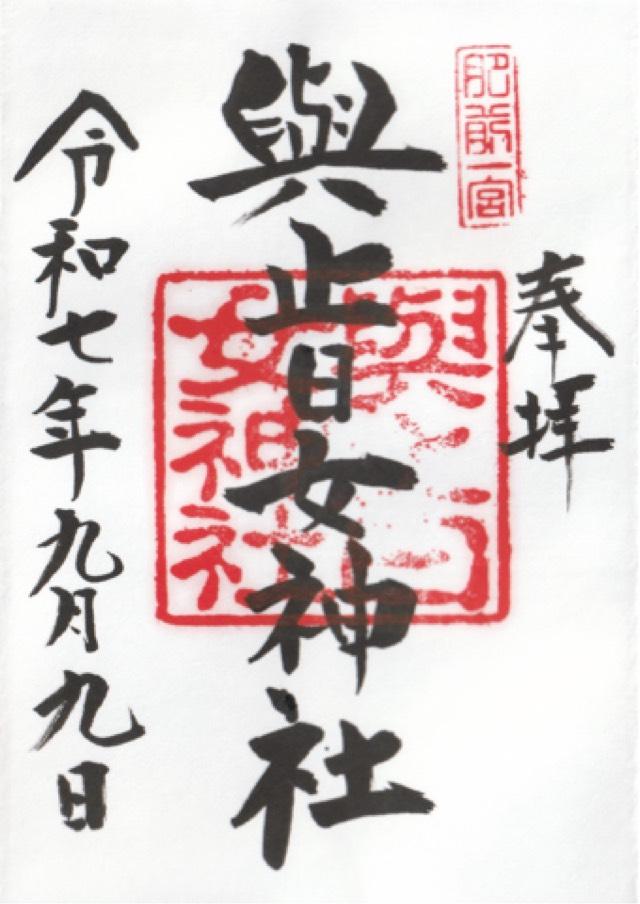 肥前一宮
奉拝
與止日女神社
與止日女神社
令和七年九月九日